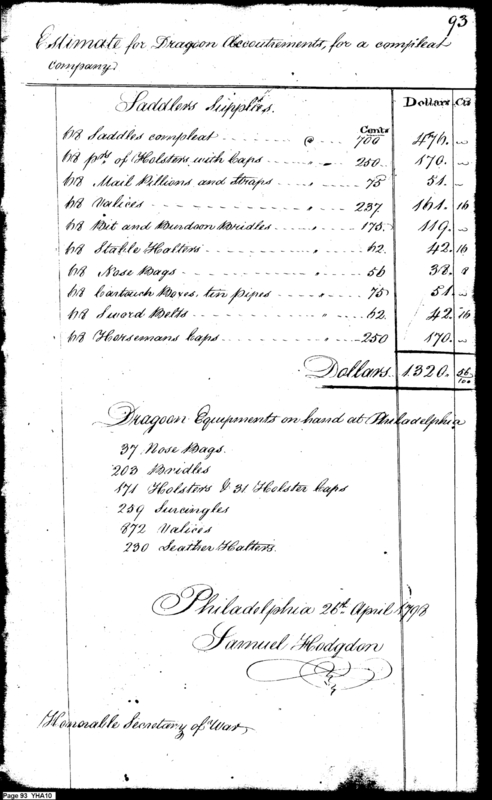 93
Estimate for Dragoon Accoutrements, for a compleat
company.
Saddlers Supplies. Dollars Cts
Cents
68 Saddles compleat @ 700 476. "
68 prs of Holsters, with Caps " 250 170. "
68 Mail Pillions and straps " 75 51. "
68 Valices " 237 161. 16
68 Bit and Bridson Bridles " 175 119. "
68 Stable Halters " 62 42. 16
68 Nose Bags " 56 38. 8
68 Cartouch Boxes, tin pipes " 75 51. "
68 Sword Belts " 62 42. 16
68 Horsemans Caps 250 170. "
Dollars 1320. 56/100
Dragoon Equipments on hand at Philadelphia
37 Nose Bags.
203 Bridles
171 Holsters & 31 Holster Caps
259 Surcingles
872 Valices
230 Leather Halters.
Philadelphia 26th April 1798
Samuel Hodgdon
Honorable Secretary of War
Page 93 YHA10